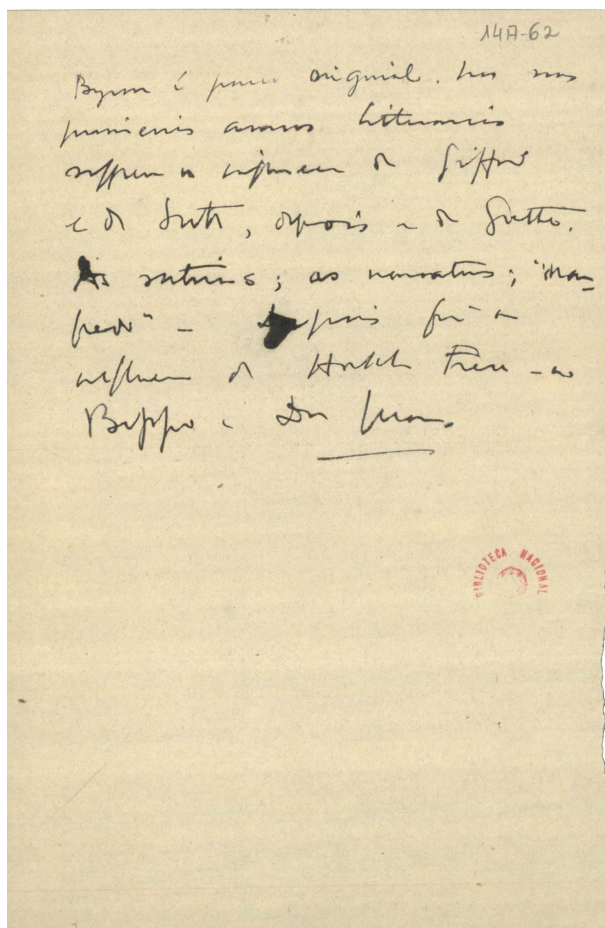 14A-62
Byron é pouco original. Nos seus
primeiros annos litterarios
soffreu a influencia de Gifford
e de Scott, depois a de Goethe.
As satiras; as narrativas; "Man-
fredo" - Depois foi a
influencia de Hookham Frere - no
Beppo e Don Juan.
BIBLIOTECA NACIONAL